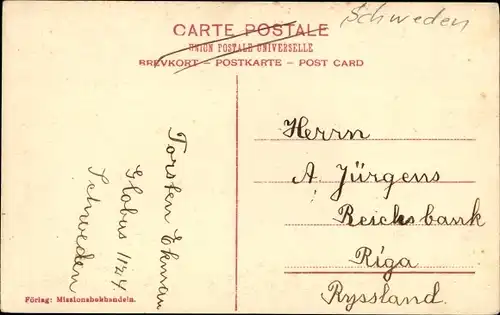 Schweden
CARTE POSTALE
UNION POSTALE UNIVERSELLE
BREVKORT – POSTKARTE – POST CARD
Torsten Ekman
Globus 1124
Schweden
Herrn
A. Jürgens
Reichsbank
Riga
Ryssland.
Förlag: Missionsbokhandeln.